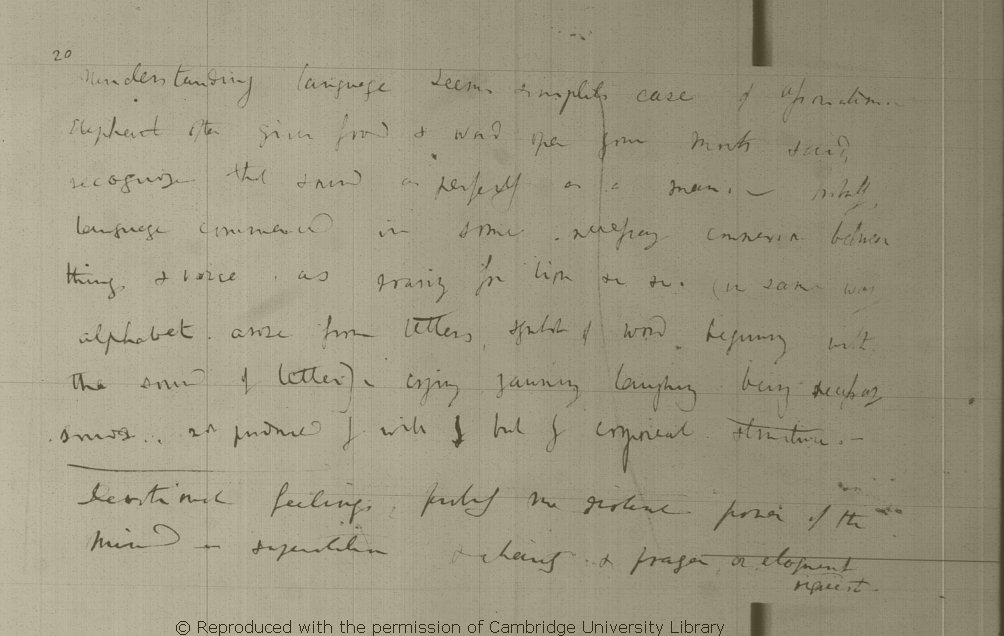 20
Understanding language seems simplest case of association.
Elephant often given food & word open your mouth said,
recognize that sound as perfectly as a man. —
language commenced in some necessary connexion between
things & voice. as roaring for lion &c &c. (in same way
alphabet. arose from letters, symbol of word. beginning with
the sound of letter). crying yawning laughing being necessary
sounds.. not produced by will but by corporeal structure. —
devotional feelings, probably power of the
mind — superstition & charity & prayer or eloquent
request. —
© Reproduced with the permission of Cambridge University Library